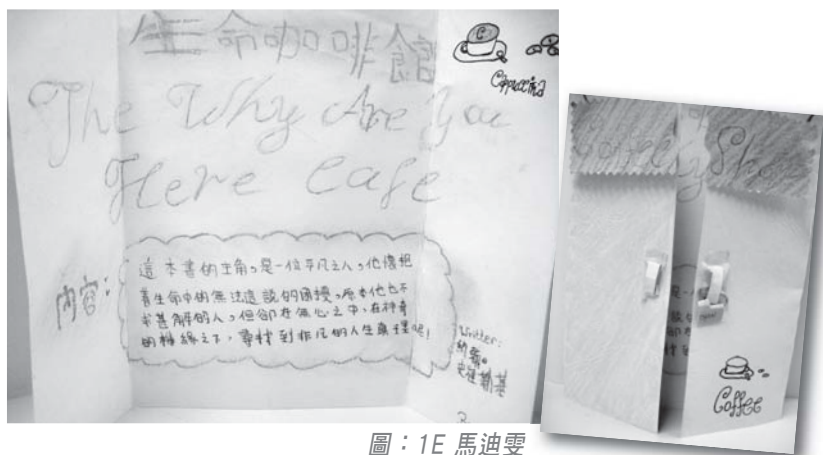 生命咖啡館
Cappuccino
The Why Are You
Here Cafe
內容:
這本書的主角,是一位平凡之人,他懷抱
著生命中的無法言說的困擾,原本他也不
求甚解的人,但卻在無心之中,在神奇
的機緣之下,尋找到非凡的人生真理呢!
Writter:
史崔勒基
Coffee Shop
Coffee
圖:1E 馬迪雯